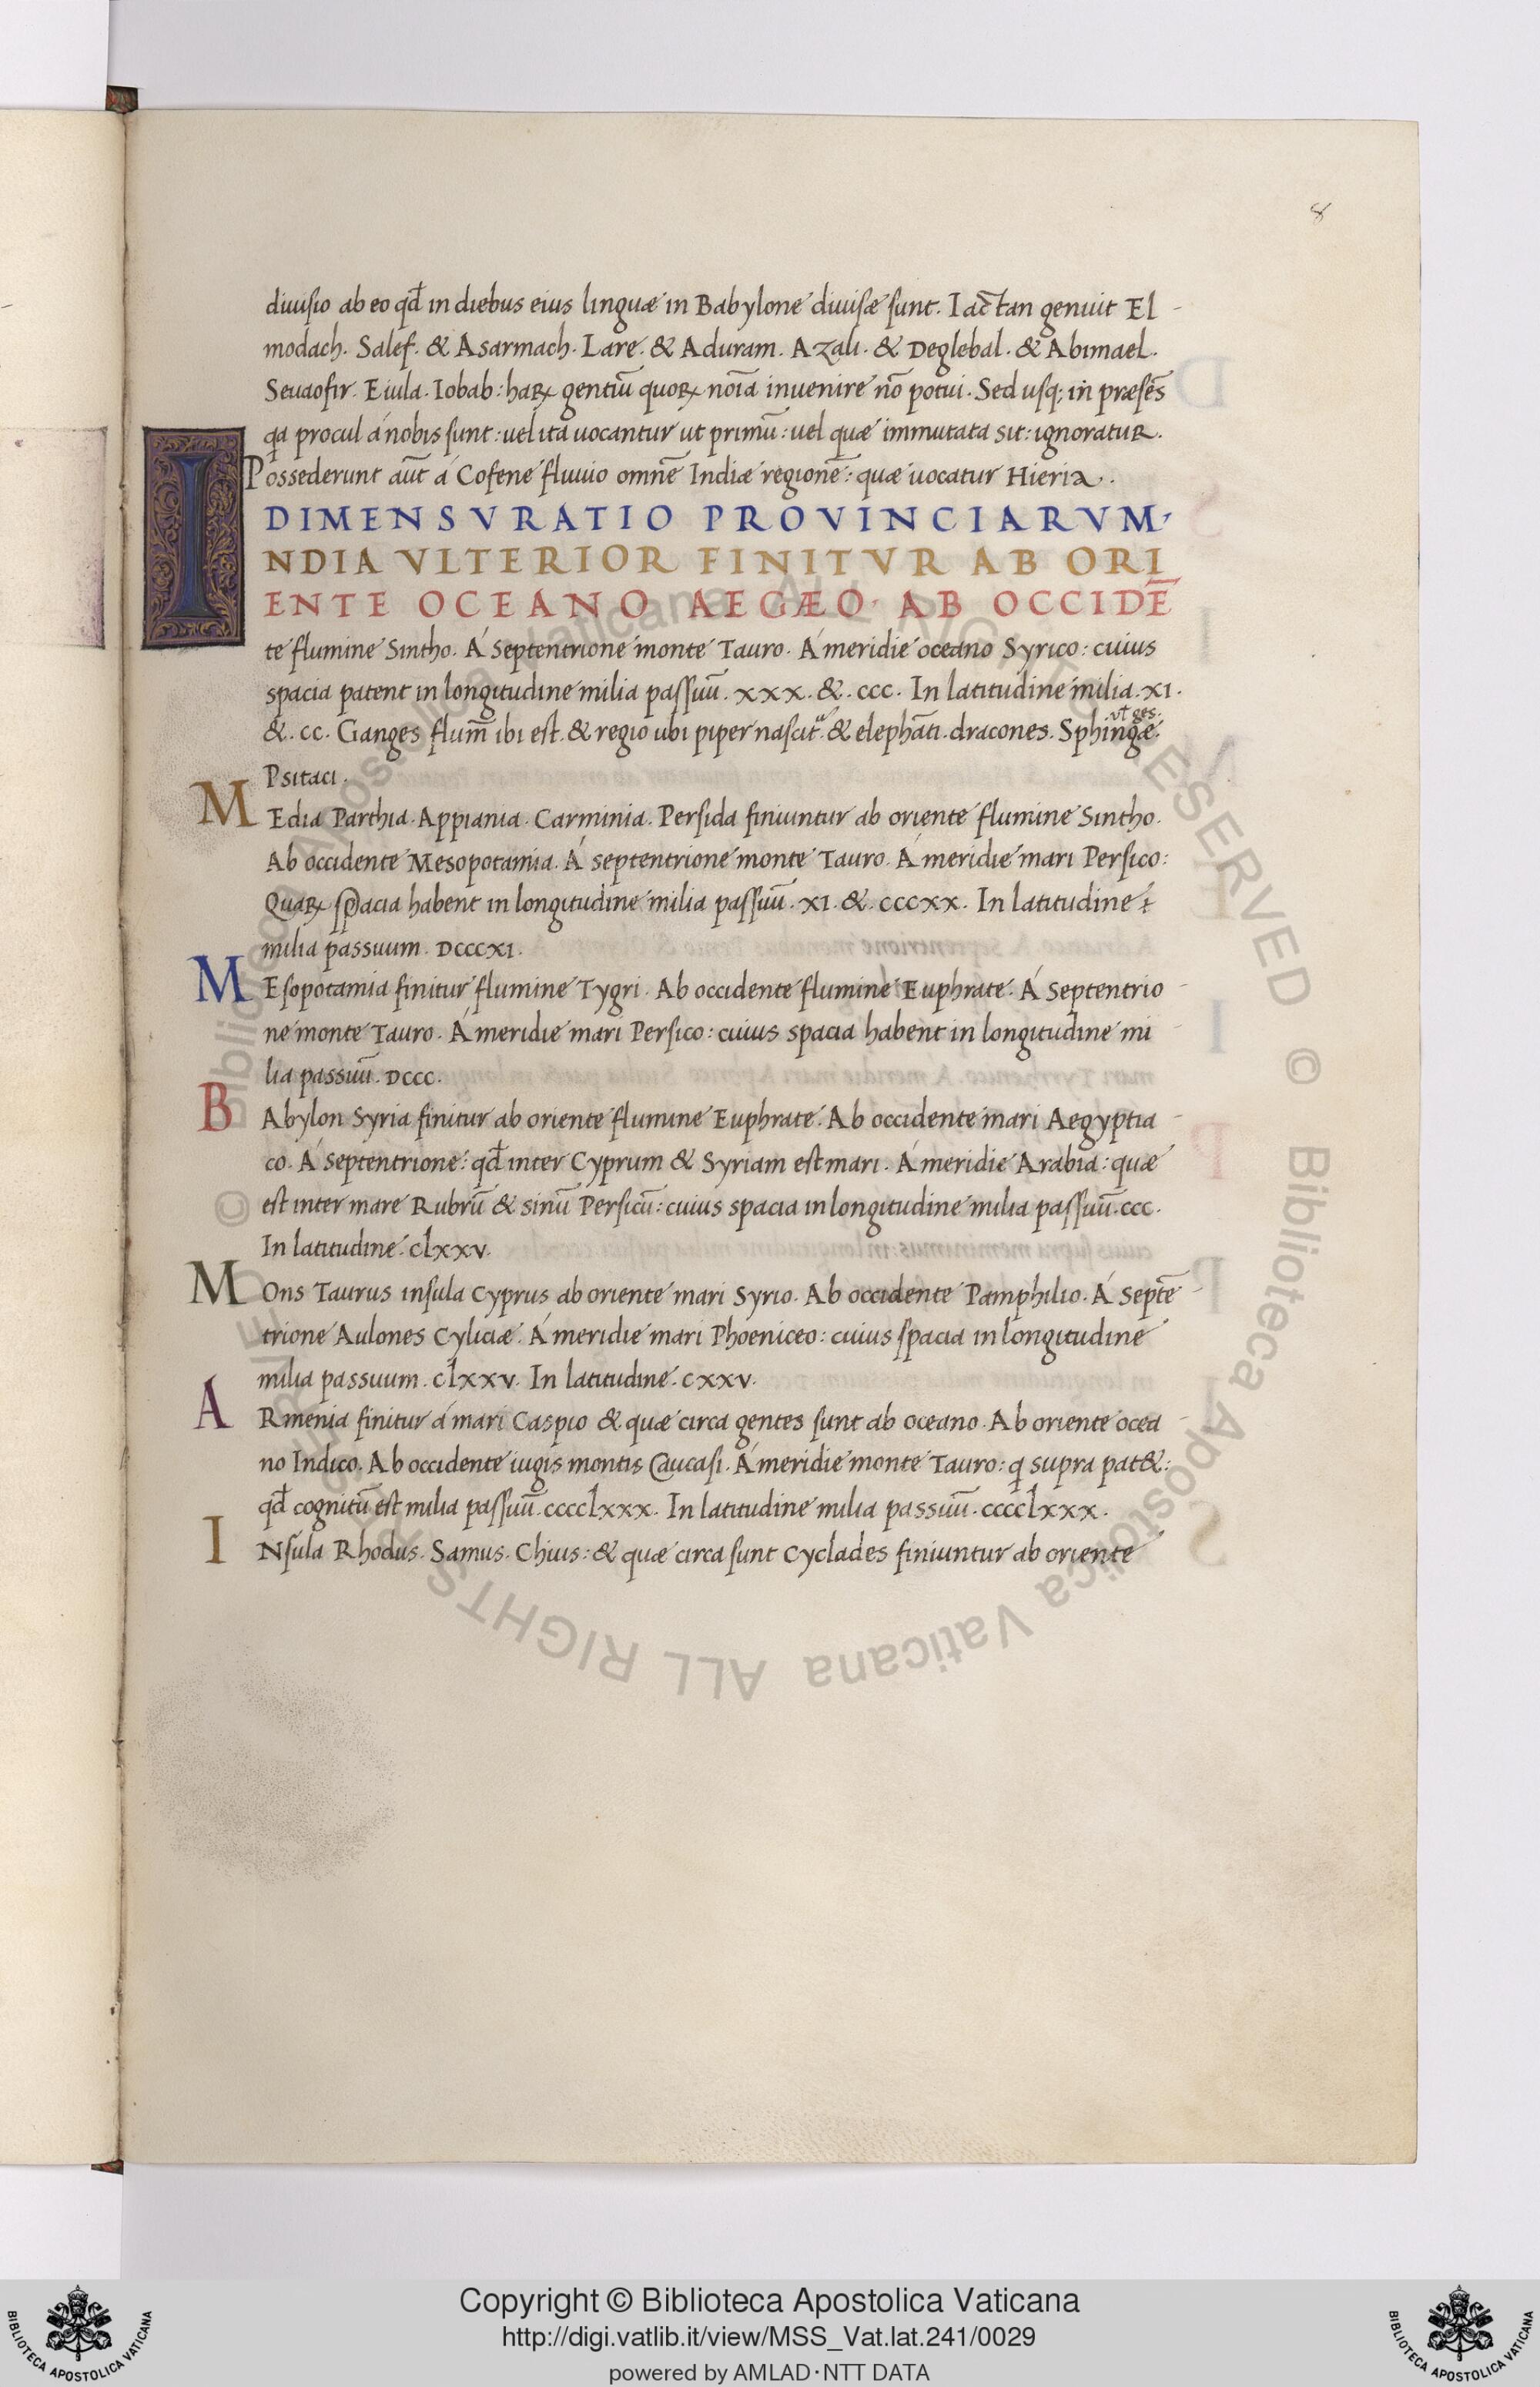 8
diuisio ab eo qđ in diebus eius linguæ in Babylone diuisæ sunt. Iactan genuit El-
modach. Salef. & Asarmach. Lare. & Aduram. Azali. & Deglebal. & Abimael.
Seuaofir. Eiula. Iobab: haꝝ gentiū quoꝝ noīa inuenire nō potui. Sed usq; in præsēs
qa procul á nobis sunt: uel ita uocantur ut primū: uel quæ immutata sit: ignoratur.
Possederunt aūt á Cofene fluuio omnē Indiæ regionē: quæ uocatur Hieria.
DIMENSVRATIO PROVINCIARVM.
INDIA VLTERIOR FINITVR AB ORI
ENTE OCEANO AEGÆO. AB OCCIDĒ
te flumine Sintho. Á septentrione monte Tauro. Á meridie oceano Syrico: cuius
spacia patent in longitudine milia passuū. xxx. &. ccc. In latitudine milia. xi.
&. cc. Ganges flum̄ ibi est. & regio ubi piper nascit᷑. & elephāti. dracones. Sphingæ.
vł ges.
Psitaci.
MEdia Parthia. Appiania. Carminia. Persida finiuntur ab oriente flumine Sintho.
Ab occidente Mesopotamia. Á septentrione monte Tauro. Á meridie mari Persico:
Quaꝝ spacia habent in longitudine milia passuū. xi. &. cccxx. In latitudine
milia passuum. dcccxi.
MEsopotamia finitur flumine Tygri. Ab occidente flumine Euphrate. Á septentrio-
ne monte Tauro. Á meridie mari Persico: cuius spacia habent in longitudine mi-
lia passuū. dccc.
BAbylon Syria finitur ab oriente flumine Euphrate. Ab occidente mari Aegyptia-
co. Á septentrione: qđ inter Cyprum & Syriam est mari. Á meridie Arabia: quæ
est inter mare Rubrū & sinū Persicū: cuius spacia in longitudine milia passuū. ccc.
In latitudine. clxxv.
MOns Taurus insula Cyprus ab oriente mari Syrio. Ab occidente Pamphilio. Á septē-
trione Aulones Cyliciæ. Á meridie mari Phoeniceo: cuius spacia in longitudine
milia passuum. clxxv. In latitudine. cxxv.
ARmenia finitur á mari Caspio & quæ circa gentes sunt ab oceano. Ab oriente ocea-
no Indico. Ab occidente iugis montis Caucasi. Á meridie monte Tauro: q supra pat&:
qđ cognitū est milia passuū. cccclxxx. In latitudine milia passuū. cccclxxx.
INsula Rhodus. Samus. Chius: & quæ circa sunt Cyclades finiuntur ab oriente
© Biblioteca Apostolica Vaticana ALL RIGHTS RESERVED © Biblioteca Apostolica Vaticana ALL RIGHTS RESERVED
Copyright © Biblioteca Apostolica Vaticana
http://digi.vatlib.it/view/MSS_Vat.lat.241/0029
powered by AMLAD·NTT DATA
BIBLIOTECA APOSTOLICA VATICANA
BIBLIOTECA APOSTOLICA VATICANA